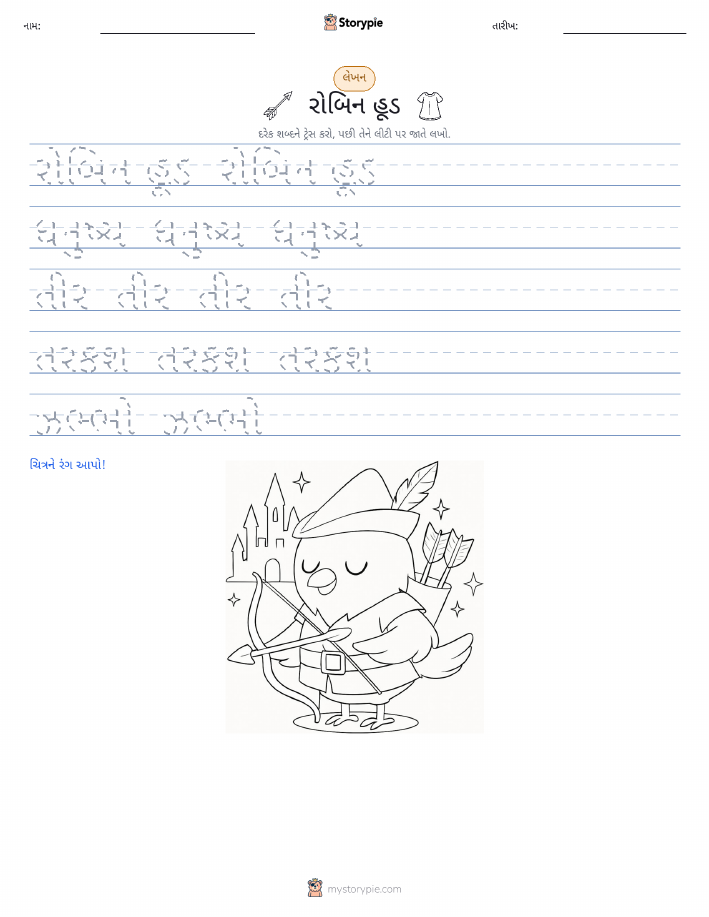 નામ:
Storypie
તારીખ:
લેખન
રોબિન હૂડ
દરેક શબ્દને ટ્રેસ કરો, પછી તેને લીટી પર જાતે લખો.
રોબિન હૂડ રોબિન હૂડ
ધનુષ્ય ધનુષ્ય ધનુષ્ય
તીર તીર તીર તીર
તરકશ તરકશ તરકશ
ઝભ્ભો ઝભ્ભો
ચિત્રને રંગ આપો!
mystorypie.com